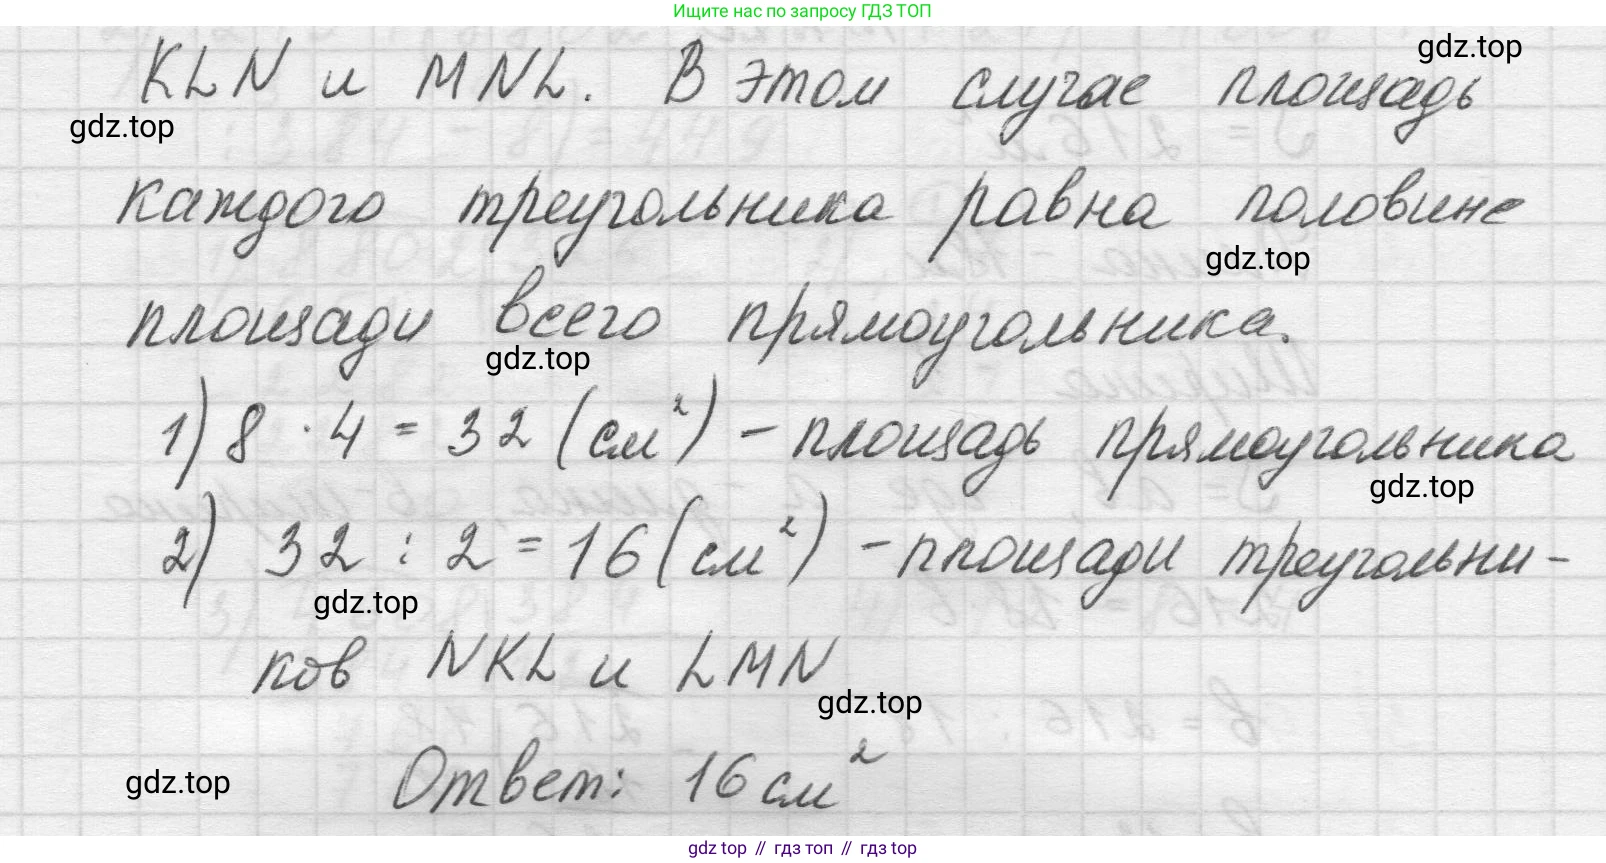 Ищите нас по запросу ГДЗ ТОП
gdz.top
KLN и MNL. В этом случае площадь
gdz.top
каждого треугольника равна половине
gdz.top
площади всего прямоугольника.
gdz.top
1) 8 · 4 = 32 (см²) – площадь прямоугольника
gdz.top
2) 32 : 2 = 16 (см²) – площади треугольни-
gdz.top
ков NKL и LMN
gdz.top
Ответ: 16 см²
gdz.top
gdz top // гдз топ // гдз top